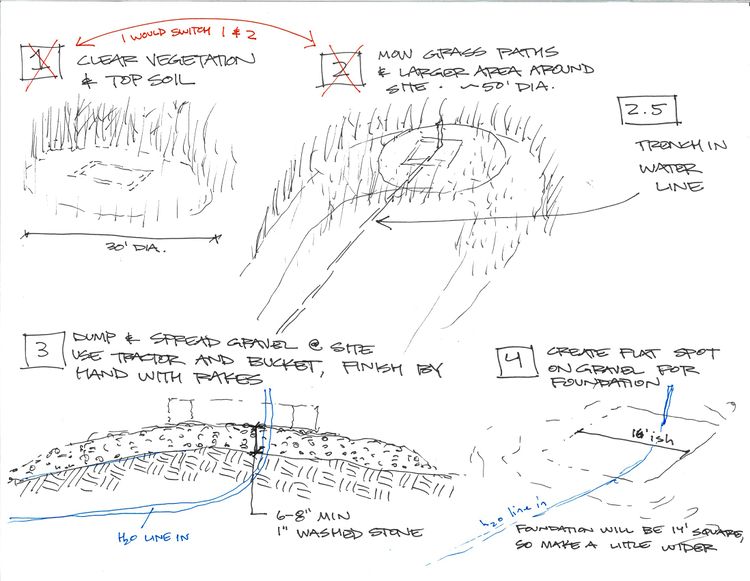 I WOULD SWITCH 1 & 2
1
CLEAR VEGETATION
& TOP SOIL
30' DIA.
2
MOW GRASS PATHS
& LARGER AREA AROUND
SITE - ~50' DIA.
2.5
TRENCH IN
WATER
LINE
3
DUMP & SPREAD GRAVEL @ SITE
USE TRACTOR AND BUCKET, FINISH BY
HAND WITH RAKES
H2O LINE IN
6-8" MIN
1" WASHED STONE
4
CREATE FLAT SPOT
ON GRAVEL FOR
FOUNDATION
16'ish
h2o line in
FOUNDATION WILL BE 14' SQUARE,
SO MAKE A LITTLE WIDER